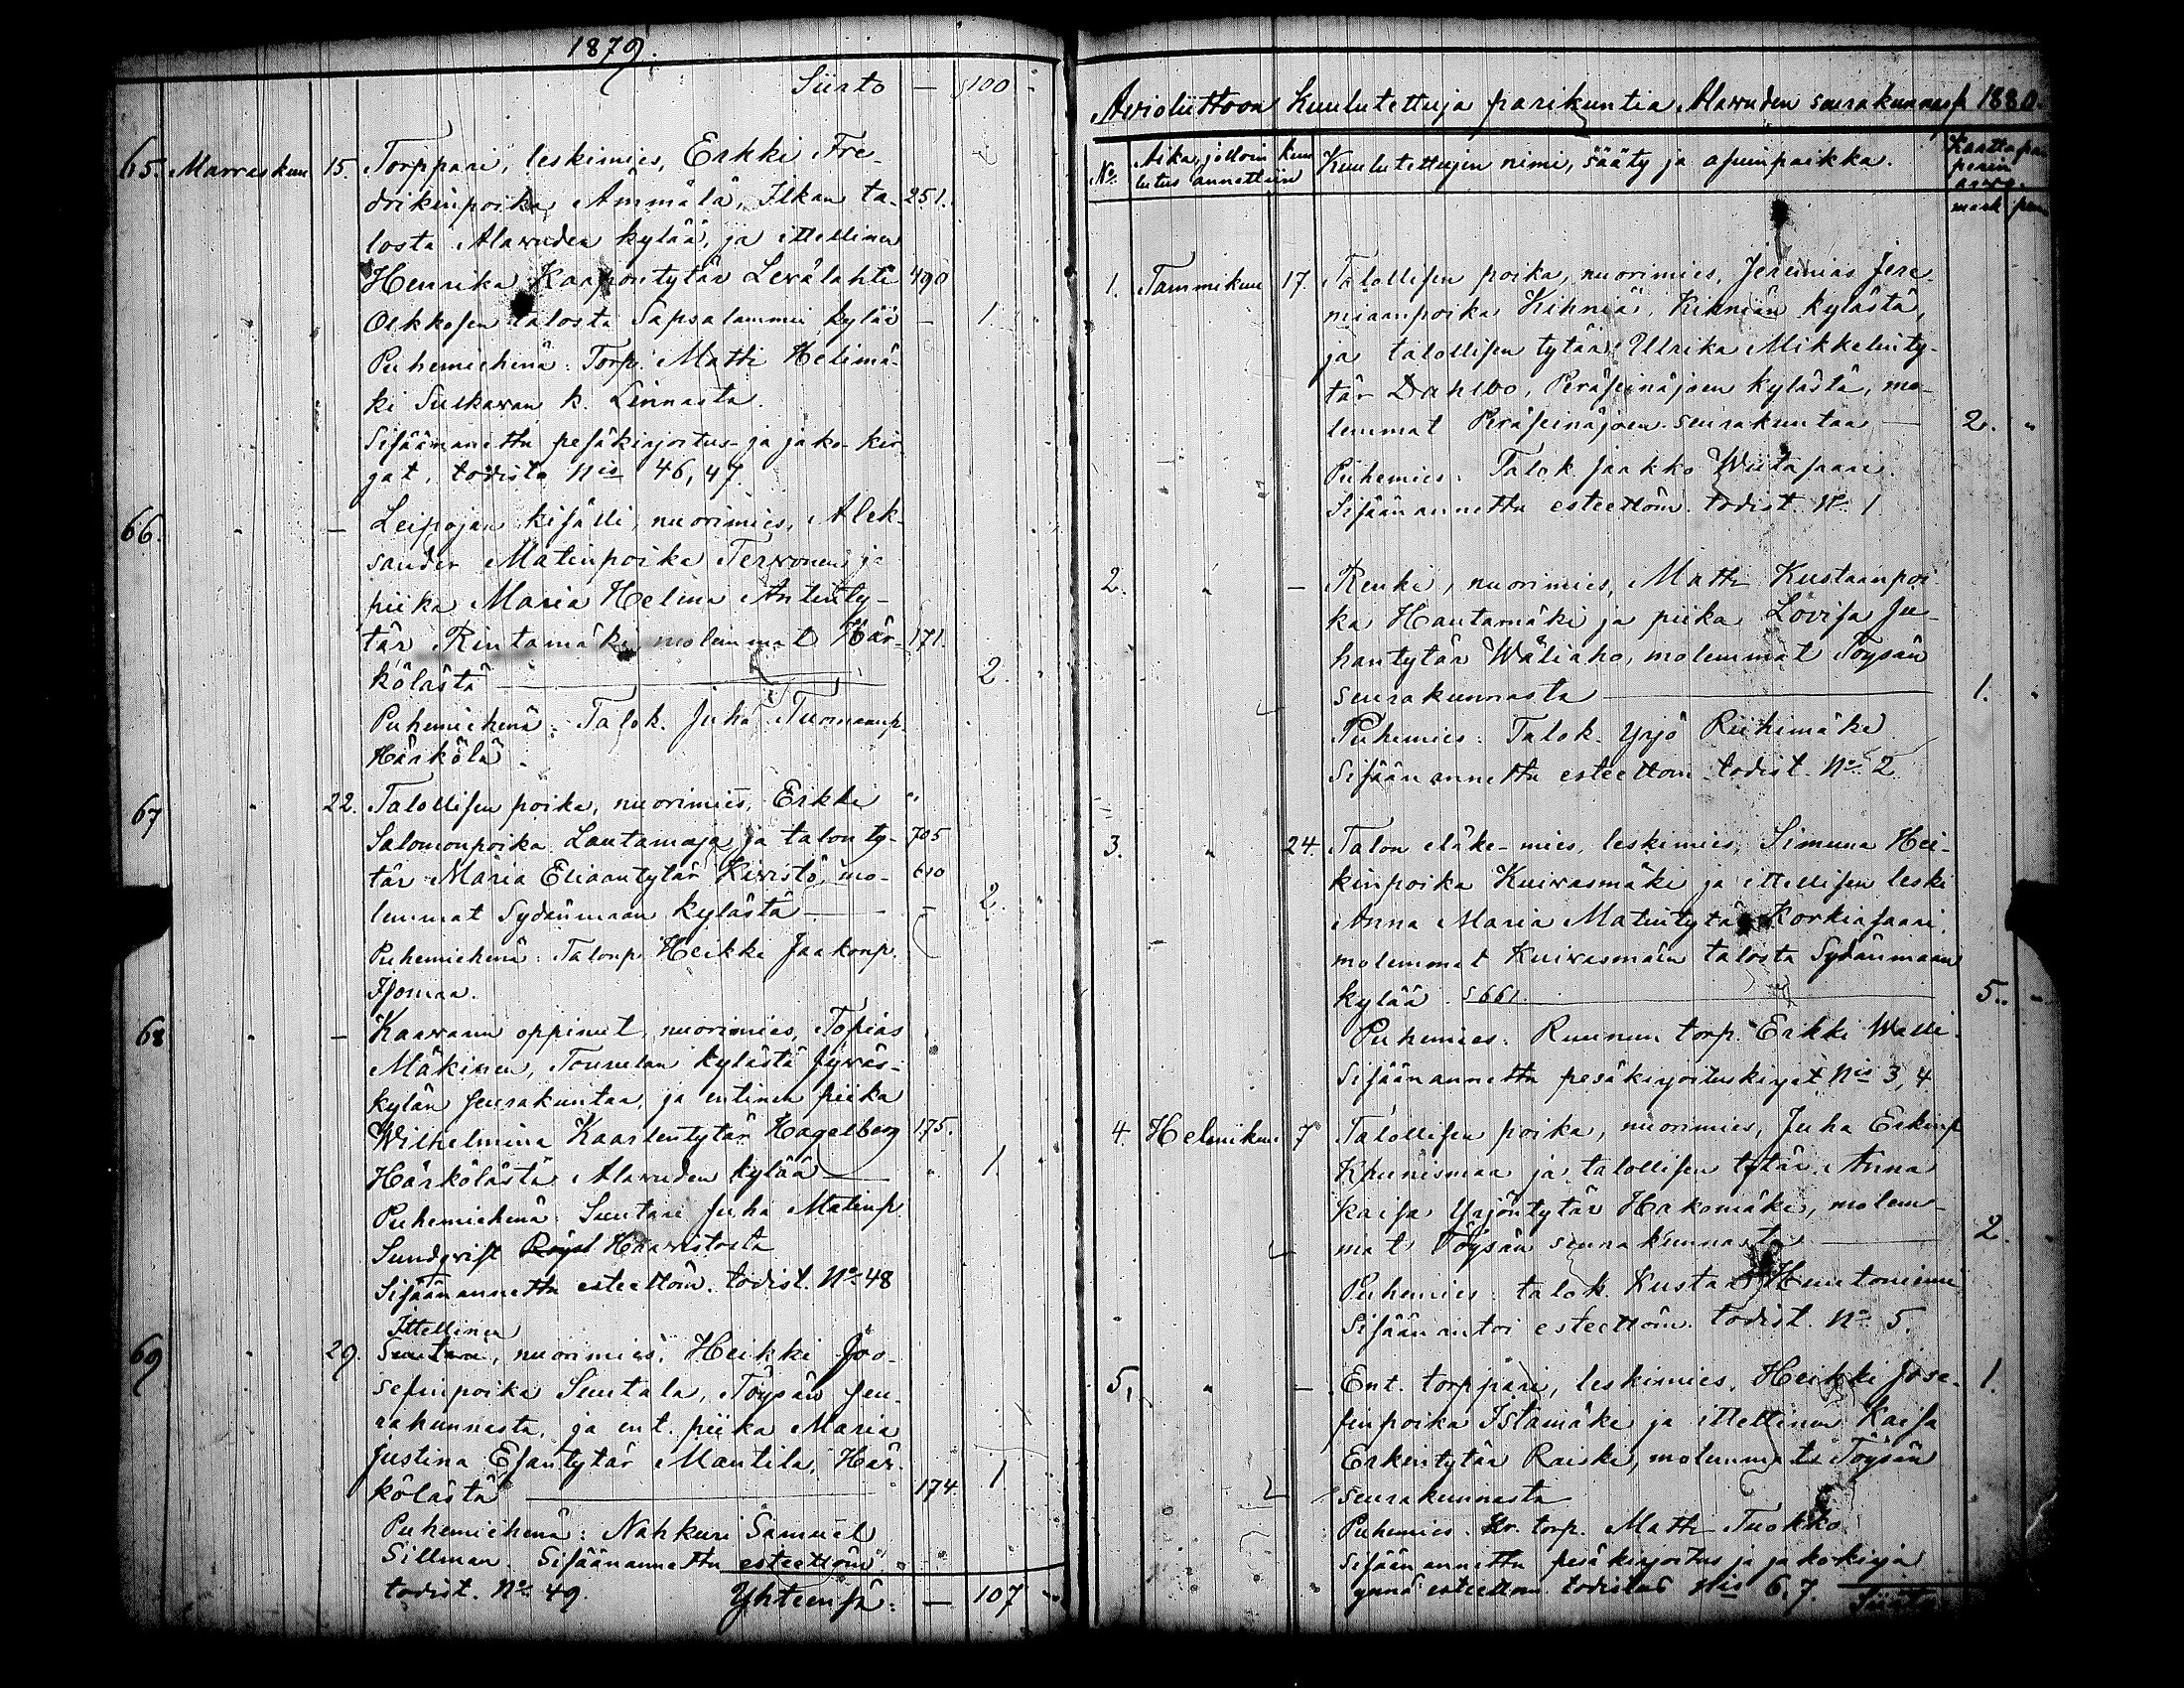 1879.
Siirto — 100 -
65. Marraskun 15. Torppari, leskimies, Erkki Fre-
drikinpoika Ämmälä, Ilkan ta- 251.
losta Alawuden kylää, ja ittellinen
Henrika Kaapontytär Levälahti 490
Olkkosen talosta Sapsalammin kylää — 1. "
Puhemiehenä: Torp. Matti Helimä-
ki Sulkawan k. Linnasta.
Sisäänannettu pesäkirjoitus- ja jako-kir-
jat, todisto Nis 46, 47.
66. " — Leipojan kisälli, nuorimies, Alek-
sander Matinpoika Terwonen ja
piika Maria Helena Antinty-
tär Rintamäki, molemmat Här- 171.
kölästä — 2. "
Puhemiehenä: Talok. Juha Tuomaanp.
Härkölä.
67 " 22. Talollisen poika, nuorimies, Erkki "
Salomonpoika Lautamaja ja talon ty- 705
tär Maria Eliaantytär Kivistö, mo- 610
lemmat Sydänmaan kylästä — — 2. "
Puhemiehenä: Talonp. Heikki Jaakonp.
Isomaa.
68 " — Kaavarin oppinut, nuorimies, Topias
Mäkinen, Tourulan kylästä Jyväs-
kylän seurakuntaa, ja entinen piika
Wilhelmina Kaarlentytär Hagelberg 175.
Härkölästä Alawuden kylää — " 1. "
Puhemiehenä: Suutari Juha Matinp.
Sundqvist Haaristosta
Sisäänannettu esteettöm. todist. No 48
Ittellinen
69 " 29. Suutari, nuorimies, Heikki Joo-
sefinpoika Suutala, Töysän seu-
rakunnasta, ja ent. piika Maria
Justina Esantytär Mantila, Här-
kölästä — 174. 1.
Puhemiehenä: Nahkuri Samuel
Sillman. Sisäänannettu esteettöm.
todist. No 49. Yhteensä: — 107 -
Avioliittoon Kuulutettuja parikuntia Alawuden seurakunnass 1880.
No. Aika, jolloin kuu-
lutus annettiin Kuulutettujen nimi, sääty ja asuinpaikka.
mark pen
1. Tammikun 17. Talollisen poika, nuorimies, Jeremias Jere-
miaanpoika Kihniä, Kihniän kylästä,
ja talollisen tytär Ulrika Mikkelinty-
tär Dahlbo, Peräseinäjoen kylästä, mo-
lemmat Peräseinäjoen seurakuntaa — 2. "
Puhemies: Talok. Jaakko Wiitasaari.
Sisäänannettu esteettöm. todist. No 1
2. " — Renki, nuorimies, Matti Kustaanpoi-
ka Hautamäki ja piika Lovisa Ju-
hantytär Wäliaho, molemmat Töysän
seurakunnasta — 1. "
Puhemies: Talok. Yrjö Riihimäki
Sisäänannettu esteettöm. todist. No. 2.
3. " 24. Talon eläke-mies, leskimies, Simuna Hei-
kinpoika Kuivasmäki ja ittellisen leski
Anna Maria Matintytär Korkiasaari,
molemmat Kuivasmäen talosta Sydänmaan
kylää. S 661. — 5. -
Puhemies: Ruunun torp. Erkki Walli.
Sisäänannettu pesäkirjoituskirjat Nis 3, 4
4. Helmikun 7 Talollisen poika, nuorimies, Juha Erkinp.
Kuunismaa ja talollisen tytär Anna
Kaisa Yrjöntytär Hakomäki, molem-
mat Töysän seurakunnasta — 2. "
Puhemies: talok. Kustaa Huutoniemi
Sisäänantoi esteettöm. todist. No. 5.
5, " — Ent. torppari, leskimies, Heikki Jose- 1.
finpoika Istamäki ja ittellinen Kaisa
Erkintytär Raiski, molemmat Töysän
seurakunnasta
Puhemies. Kr. torp. Matti Tuokko.
Sisäänannettu pesäkirjoitus ja jakokirja
ynnä esteettöm. todistus Nis 6, 7. Siirto